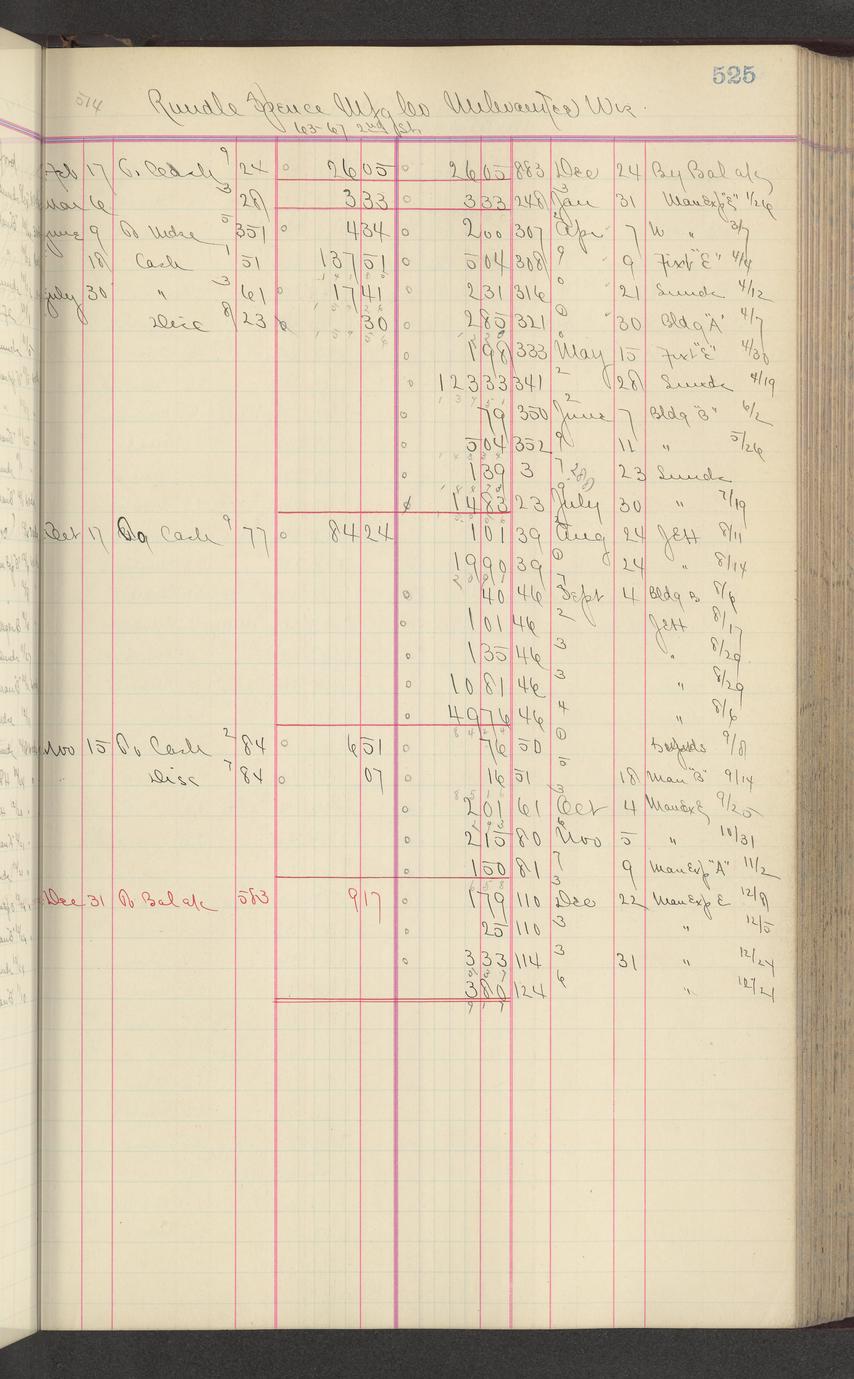 525
514 Rundle Spence Mfg Co Milwaukee Wis.
63-67 2nd St.
Feb 17 To Cash 9 24 26 05 26 05 883 Dec 24 By Balance
Mar 6 3 28 3 33 3 33 248 3 Jan 31 Man Exp "E" 1/26
June 9 To Mdse 5 351 4 34 2 00 307 Apr 7 W " 3/7
18 Cash 1 51 137 51 5 04 308 9 " 9 Fixt "E" 4/4
July 30 " 3 61 17 41 2 31 316 0 " 21 Sunds 4/12
Disc 8 23 30 2 85 321 0 " 30 Bldg "A" 4/7
1 98 333 May 15 Fixt "E" 4/30
123 33 341 2 28 Sunds 4/19
79 350 2 June 7 Bldg "B" 6/2
5 04 352 9 11 " 5/26
1 39 3 7 23 Sunds
14 83 23 9 July 30 " 7/19
Oct 17 To Cash 9 77 84 24 1 01 39 Aug 24 Jett 8/11
19 90 39 0 24 " 8/14
40 46 7 Sept 4 Bldg B 8/6
1 01 46 2 Jett 8/17
1 35 46 3 " 8/29
10 81 46 3 " 8/29
49 76 46 4 " 8/6
Nov 15 To Cash 2 84 6 51 76 50 0 9/8
Disc 7 84 07 16 51 5 18 Man "B" 9/14
2 01 61 3 Oct 4 Man Exp 9/25
2 15 80 6 Nov 5 " 10/31
1 50 81 7 9 Man Exp "A" 11/2
Dec 31 To Balance 583 9 17 1 79 110 3 Dec 22 Man Exp E 12/8
25 110 3 " 12/5
3 33 114 3 31 " 12/24
3 80 124 6 " 12/24
9 17